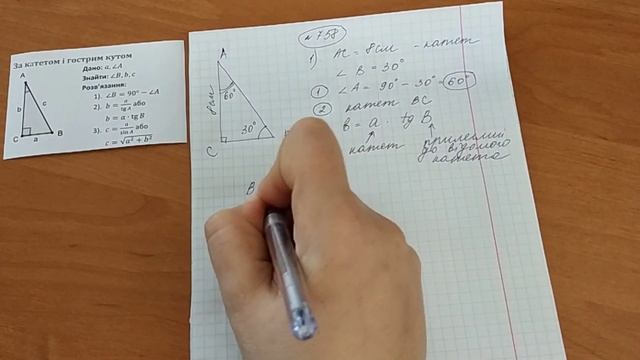 За катетом і гострим кутом
Дано: a, ∠A
Знайти: ∠B, b, c
Розв'язання:
1). ∠B = 90° − ∠A
2). b = a/tg A або
b = a · tg B
3). c = a/sin A або
c = √a² + b²
A
b
c
C
a
B
№758
1) AC = 8см - катет
∠B = 30°
① ∠A = 90° - 30° = 60°
② катет BC
b = a · tg B
катет
прилеглий
до відомого
катета
A
8см
60°
30°
C
B